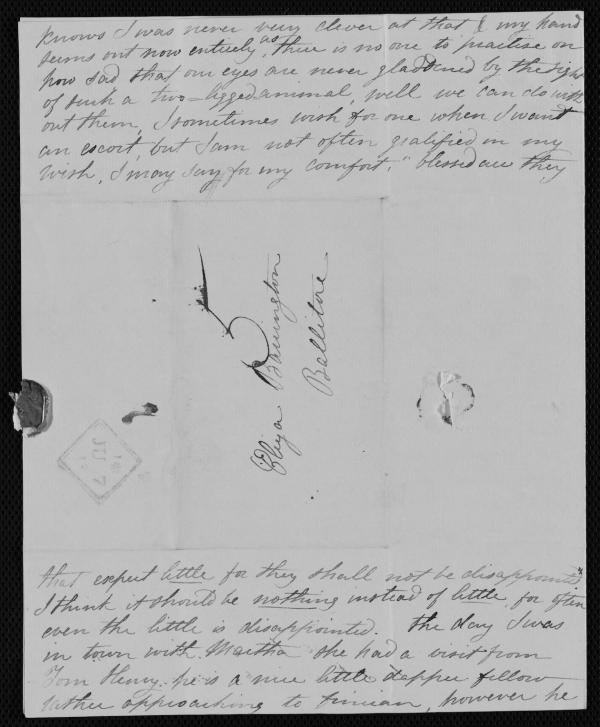 knows I was never very clever at that & my hand
seems out now entirely as there is no one to practise on
how sad that our eyes are never gladdened by the sight
of such a two-legged animal, well we can do with
out them, I sometimes wish for one when I want
an escort, but I am not often gratified in my
wish, I may say for my comfort, "blessed are they
Eliza Barrington
Ballitore
JU 7
that expect little for they shall not be disappointed"
I think it should be nothing instead of little, for often
even the little is disappointed. The day I was
in town with Martha she had a visit from
Tom Henry. he is a nice little dapper fellow
rather approaching to finican, however he